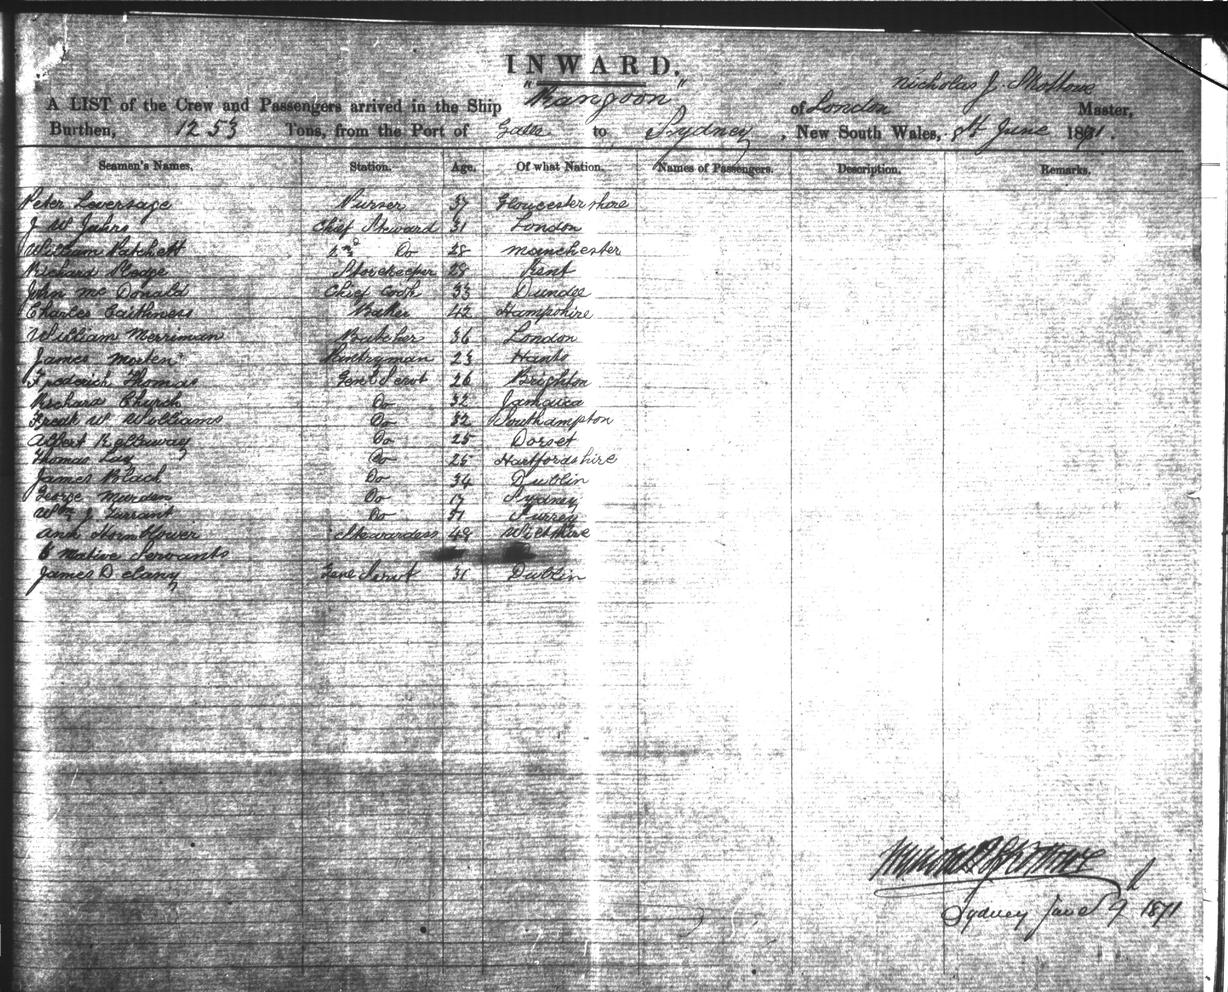 INWARD.
Nicholas J. Skottowe
A LIST of the Crew and Passengers arrived in the Ship "Rangoon" of London Master,
Burthen, 1253 Tons, from the Port of Galle to Sydney, New South Wales, 8th June 1871.
Seamen's Names, Station. Age. Of what Nation. Names of Passengers. Description. Remarks.
Peter Leversage Purser 37 Gloucestershire
J W Jahrs Chief Steward 31 London
William Patchett 2nd Do 28 Manchester
Richard Hodge Storekeeper 28 Kent
John Mc Donald Chief Cook 33 Dundee
Charles Caithness Baker 42 Hampshire
William Merriman Butcher 36 London
James Morten Pantryman 23 Hants
Frederick Thomas Genl Servt 26 Brighton
Richard Church Do 32 Jamaica
Fredk W Williams Do 32 Southampton
Albert Kellaway Do 25 Dorset
Thomas Do 25 Hartfordshire
James Do 34 Dublin
George Marden Do 17 Sydney
Wm J Do Surrey
Ann Hornblower Stewardess 48 Wiltshire
6 Native Servants
James Delany Genl Servt 31 Dublin
Sydney June 9 1871